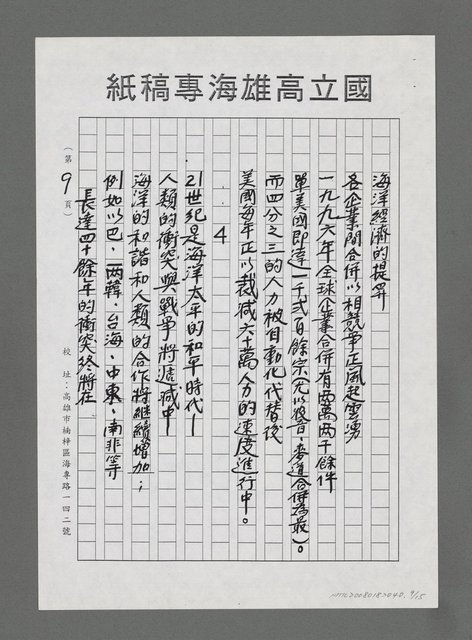 國立高雄海專稿紙
海洋經濟的提昇
各企業間合併以相競爭正風起雲湧
一九九六年全球企業合併有兩萬兩千餘件
單美國即達一千式百餘宗(尤以波音、麥道合併為最)。
而四分之三的人力被自動化代替後
美國每年正以裁減六十萬人力的速度進行中。
4
21世紀是海洋太平的和平時代—
人類的衝突與戰爭將遞減中—
海洋的和諧和人類的合作將繼續增加；
例如以巴、兩韓、台海、中東、南非等
長達四十餘年的衝突終將在
(第9頁)
校 址：高雄市楠梓區海專路一四二號
NMTL20080183040. 9/15